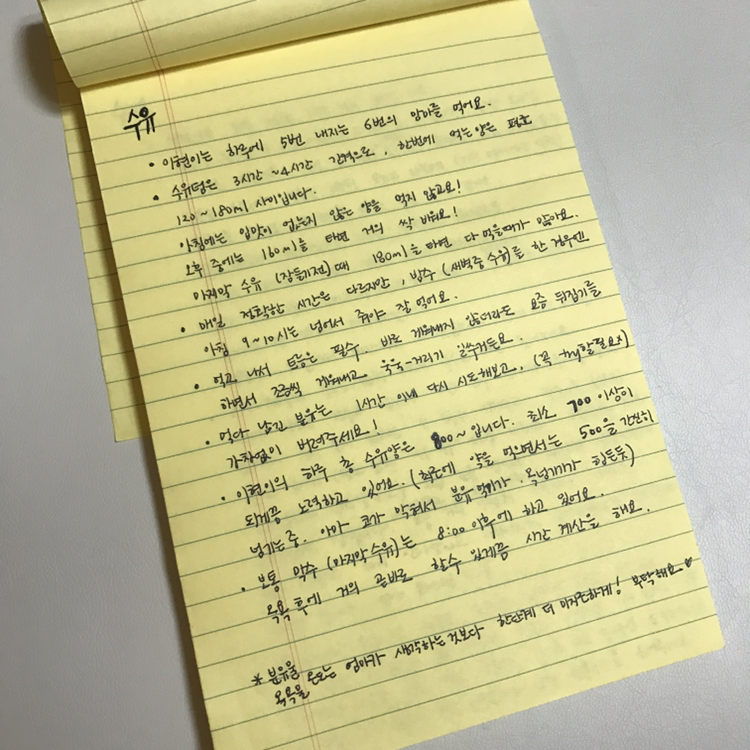 수유
• 이현이는 하루에 5번 내지는 6번의 맘마를 먹어요.
• 수유텀은 3시간 ~4시간 간격으로, 한번에 먹는양은 보통
120~180ml 사이입니다.
아침에는 입맛이 없는지 많은 양을 먹지 않고요!
오후 중에는 160ml를 타면 거의 싹 비워요!
마지막 수유 (잠들기전) 때 180ml를 타면 다 먹을때가 많아요.
• 매일 정확한 시간은 다르지만, 밤수 (새벽중 수유)를 한 경우엔
아침 9~10시는 넘어서 줘야 잘 먹어요.
• 먹고 나서 트름은 필수. 바로 게워내지 않더라도 요즘 뒤집기를
하면서 조금씩 게워내고 욱욱-거리기 일쑤거든요.
• 먹다 남긴 분유는 1시간 이내 다시 시도해보고, (꼭 try할필요x)
가차없이 버려주세요!
• 이현이의 하루 총 수유양은 800~입니다. 최소 700 이상이
되게끔 노력하고 있어요. (최근에 약을 먹으면서는 500을 간신히
넘기는중. 아마 코가 막혀서 분유 먹기가, 목넘기기가 힘든듯)
• 보통 막수 (마지막 수유)는 8:00 이후에 하고 있어요.
목욕 후에 거의 곧바로 할수 있게끔 시간 계산을 해요.
* 분유물
목욕물 온도는 엄마가 생각하는것보다 한단계 더 미지근하게! 부탁해요♥